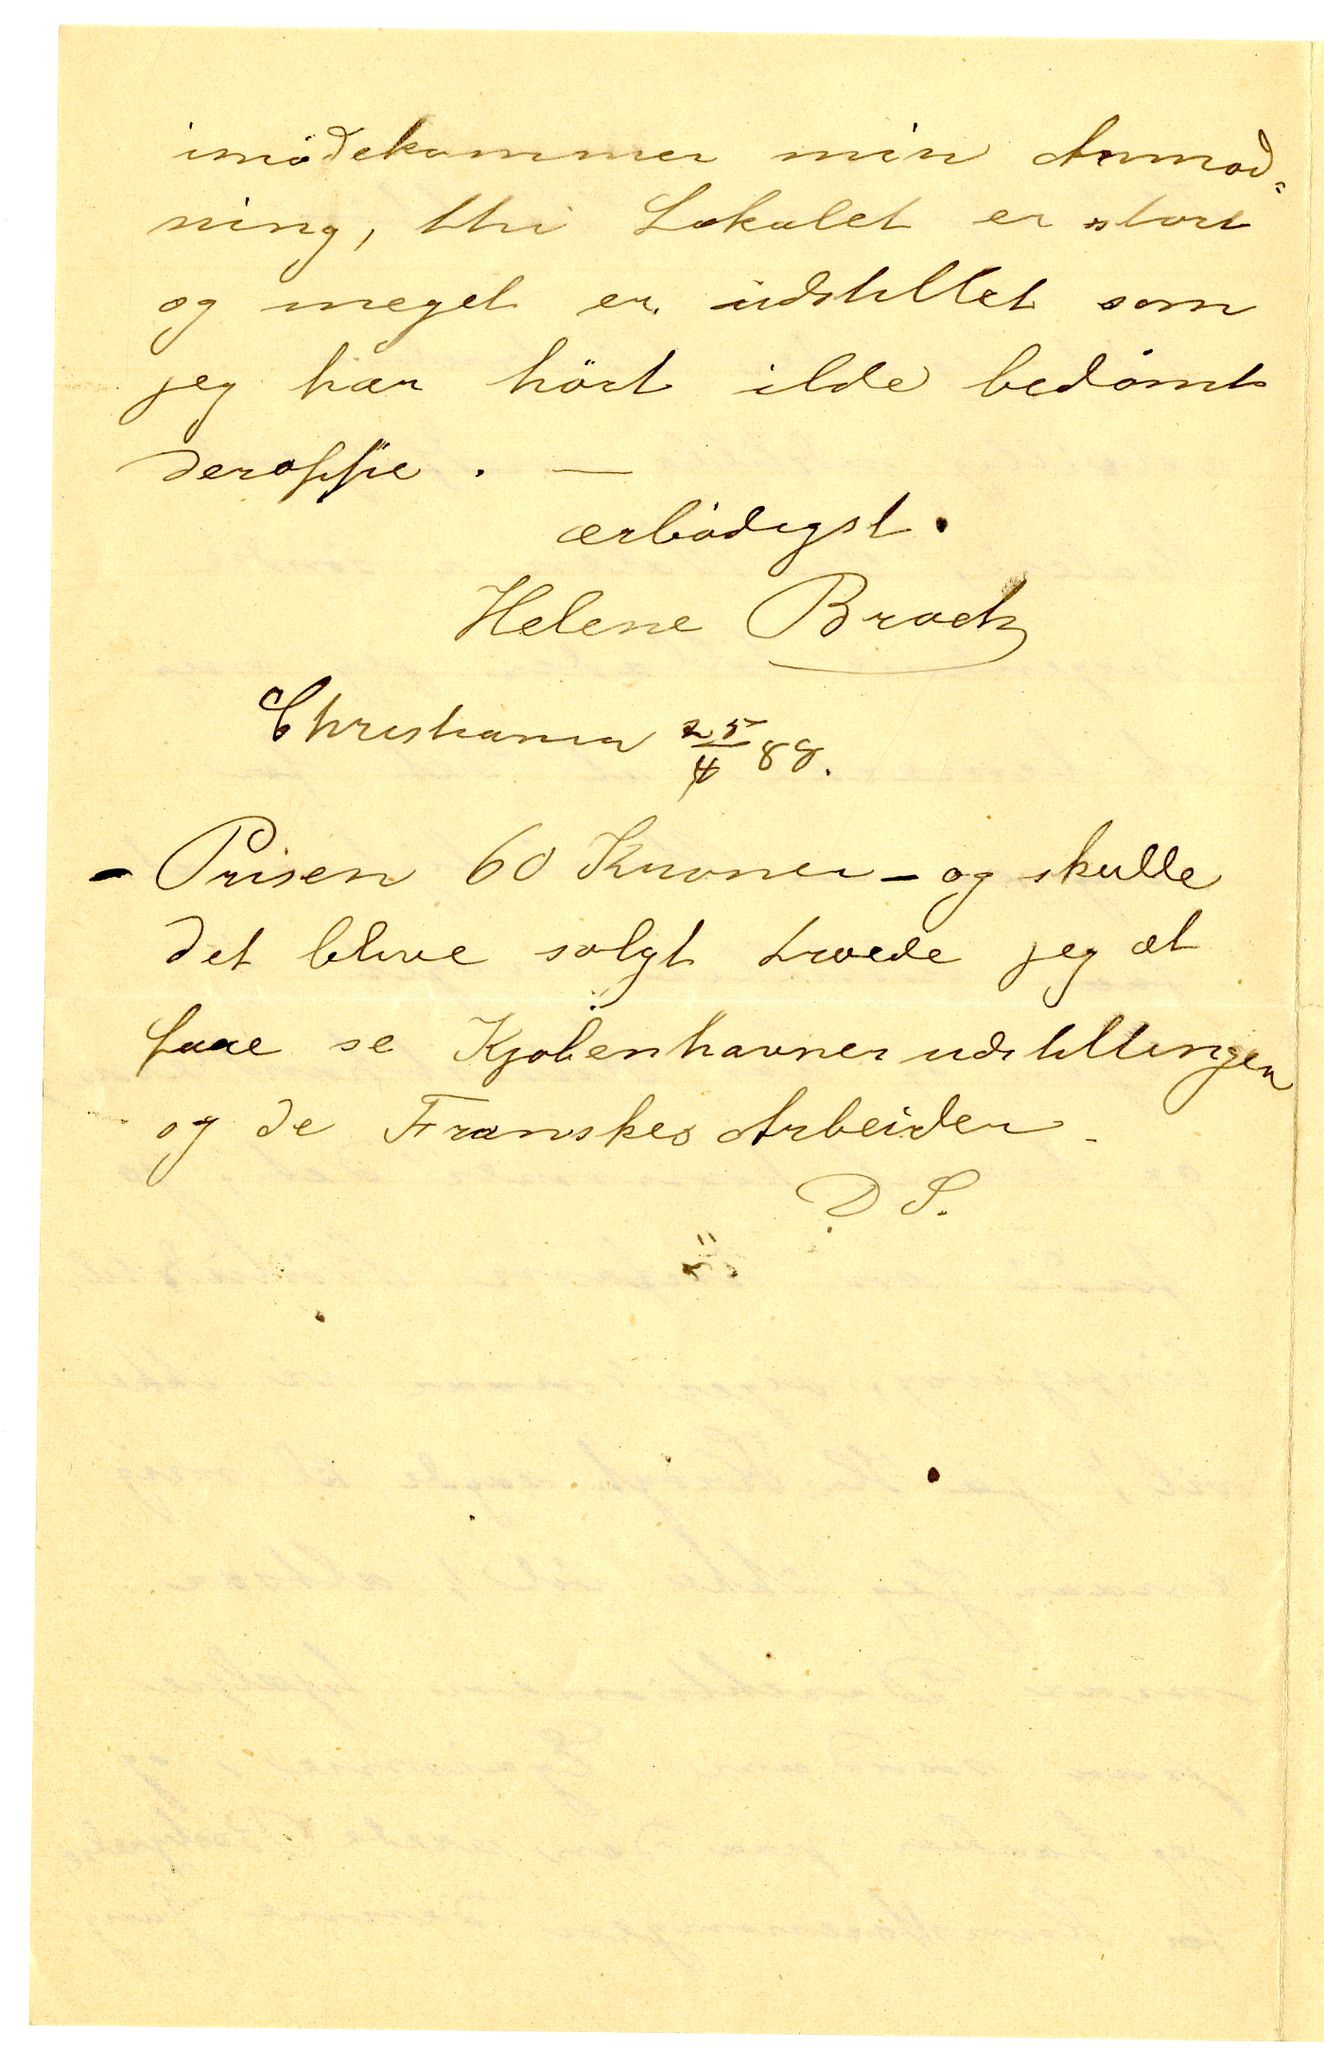 imödekommer min Anmod-
ning, thi Lokalet er stort
og meget er udstillet som
jeg har hört ilde bedömt
deroppe. —
ærbödigst.
Helene Broch
Christiania 25/4 88.
- Prisen 60 Kroner - og skulle
det blive solgt troede jeg at
faae se Kjöbenhavnerudstillingen
og de Franskes Arbeider.
D S.